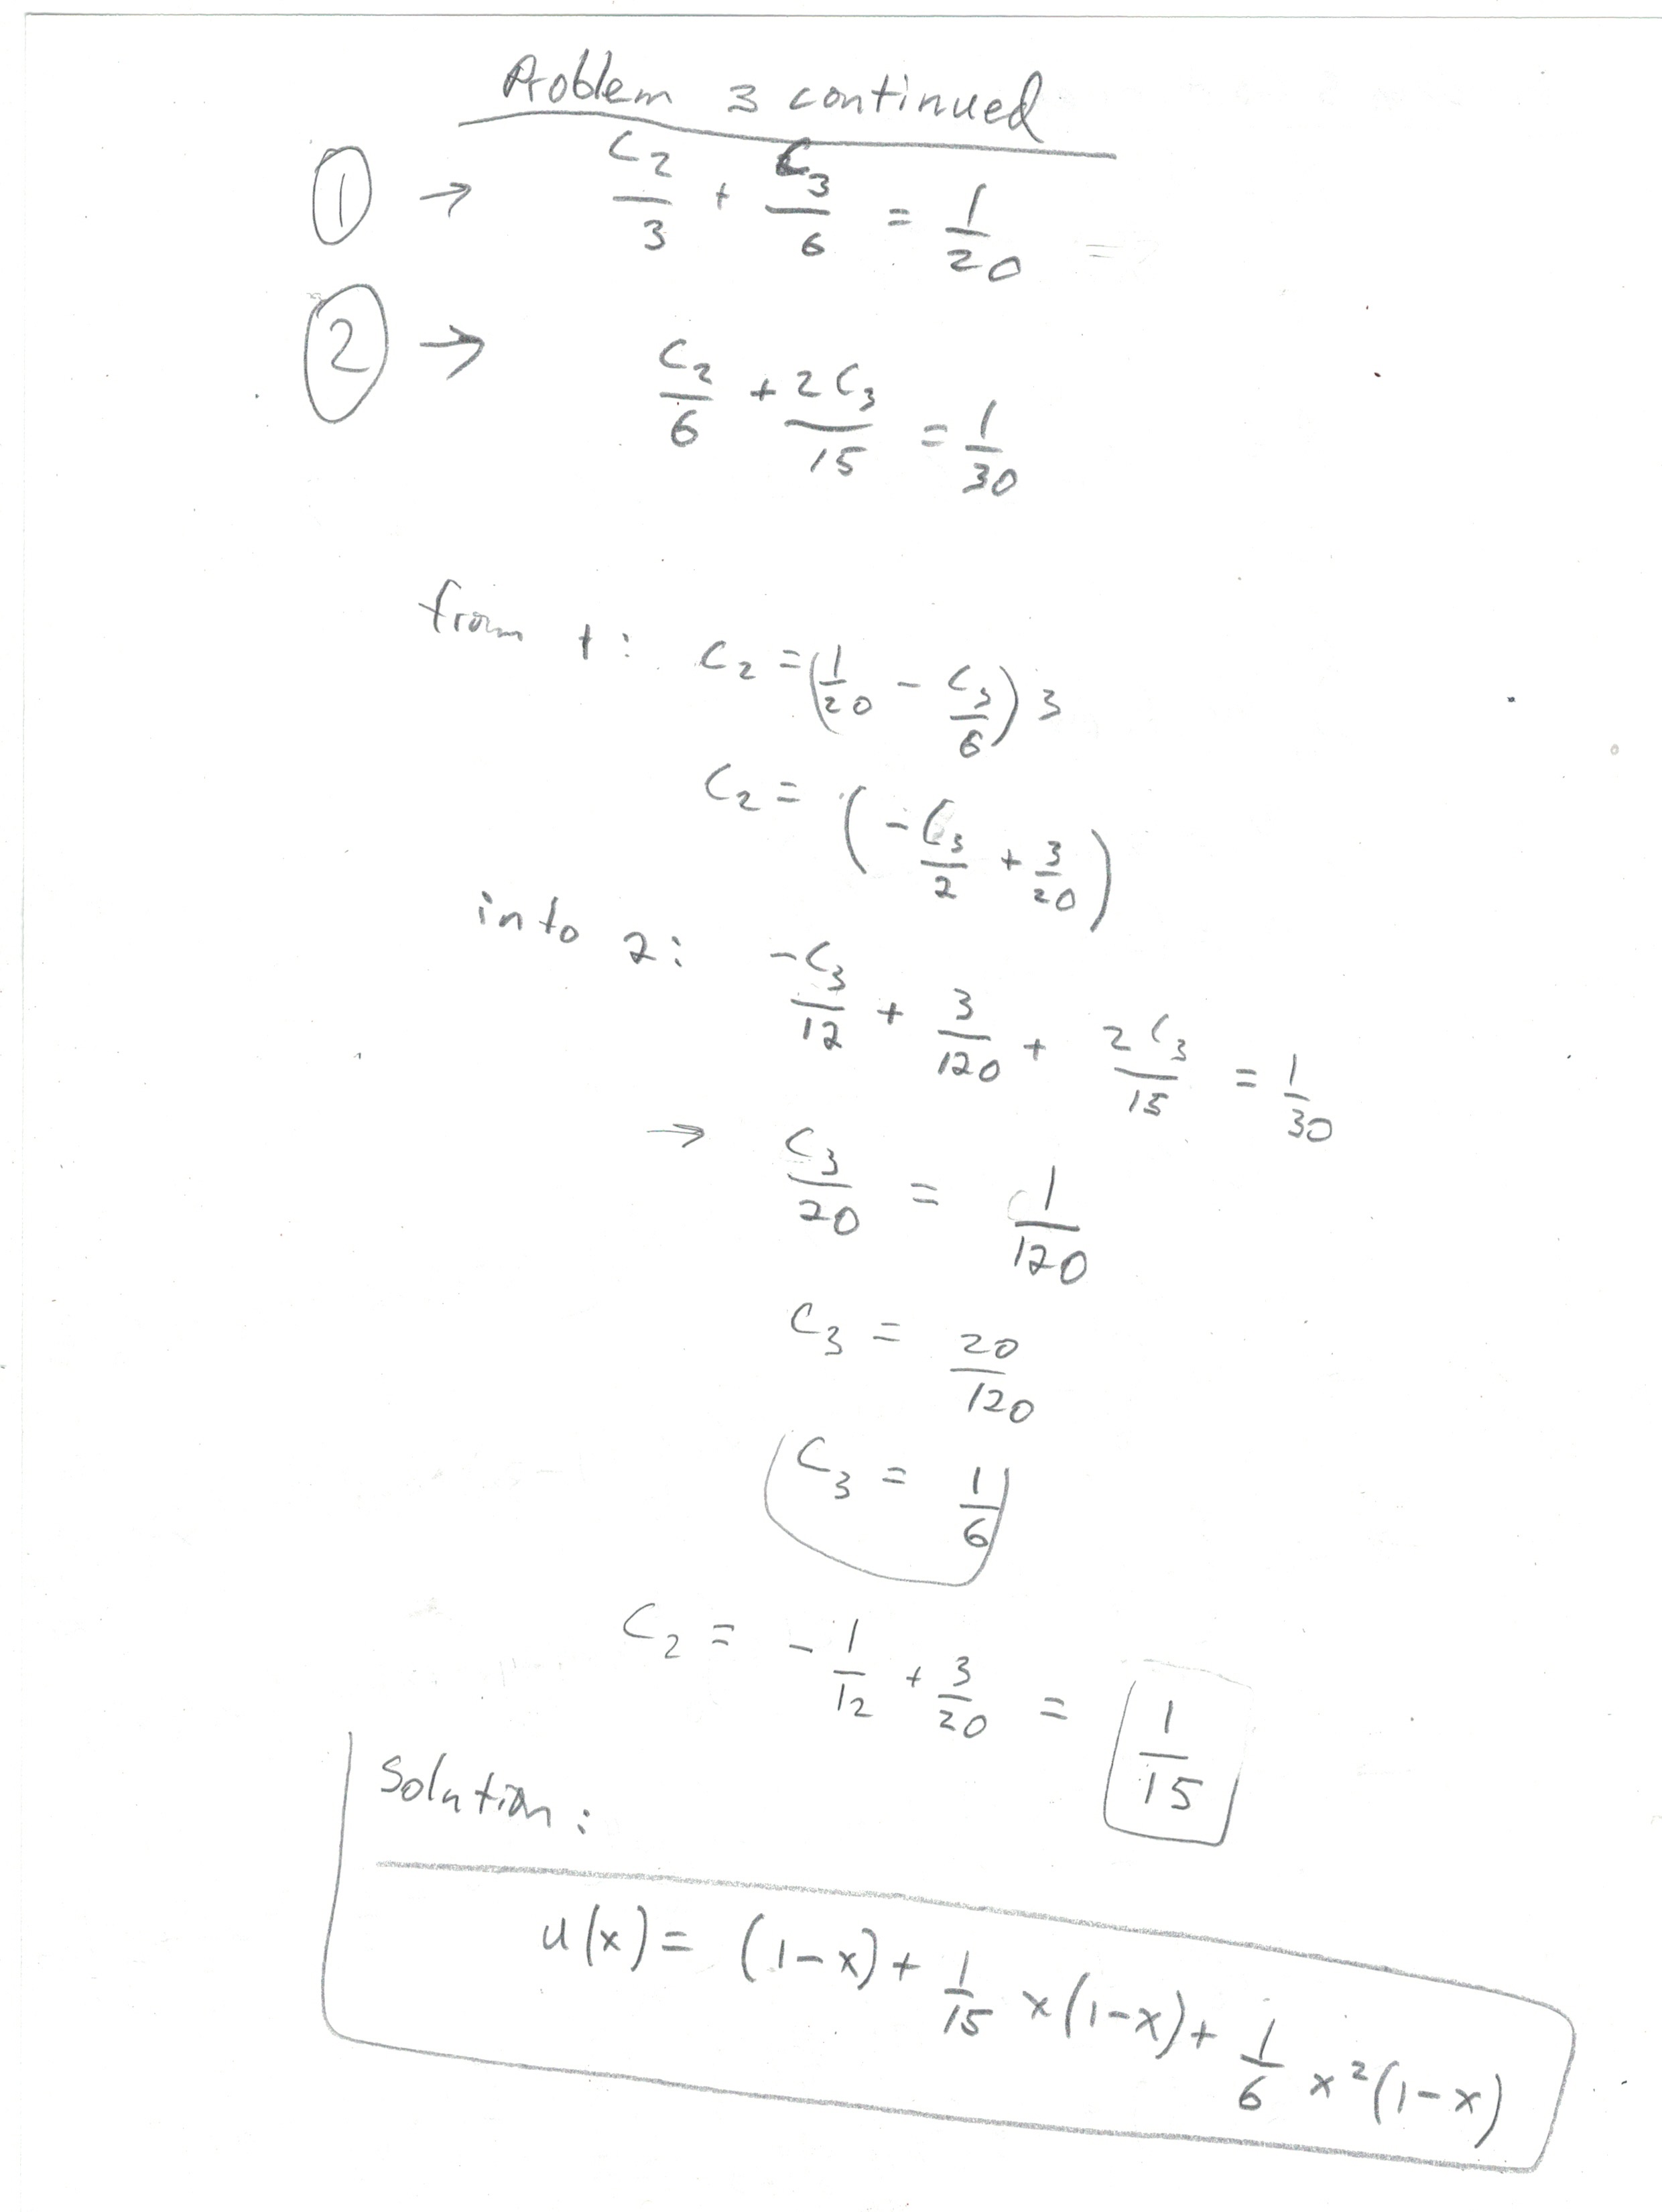 Problem 3 continued
① → C₂/3 + C₃/6 = 1/20
② → C₂/6 + 2C₃/15 = 1/30
from 1: C₂ = (1/20 - C₃/6) 3
C₂ = (-C₃/2 + 3/20)
into 2: -C₃/12 + 3/120 + 2C₃/15 = 1/30
→ C₃/20 = 1/120
C₃ = 20/120
C₃ = 1/6
C₂ = -1/12 + 3/20 = 1/15
Solution:
u(x) = (1-x) + 1/15 x(1-x) + 1/6 x²(1-x)